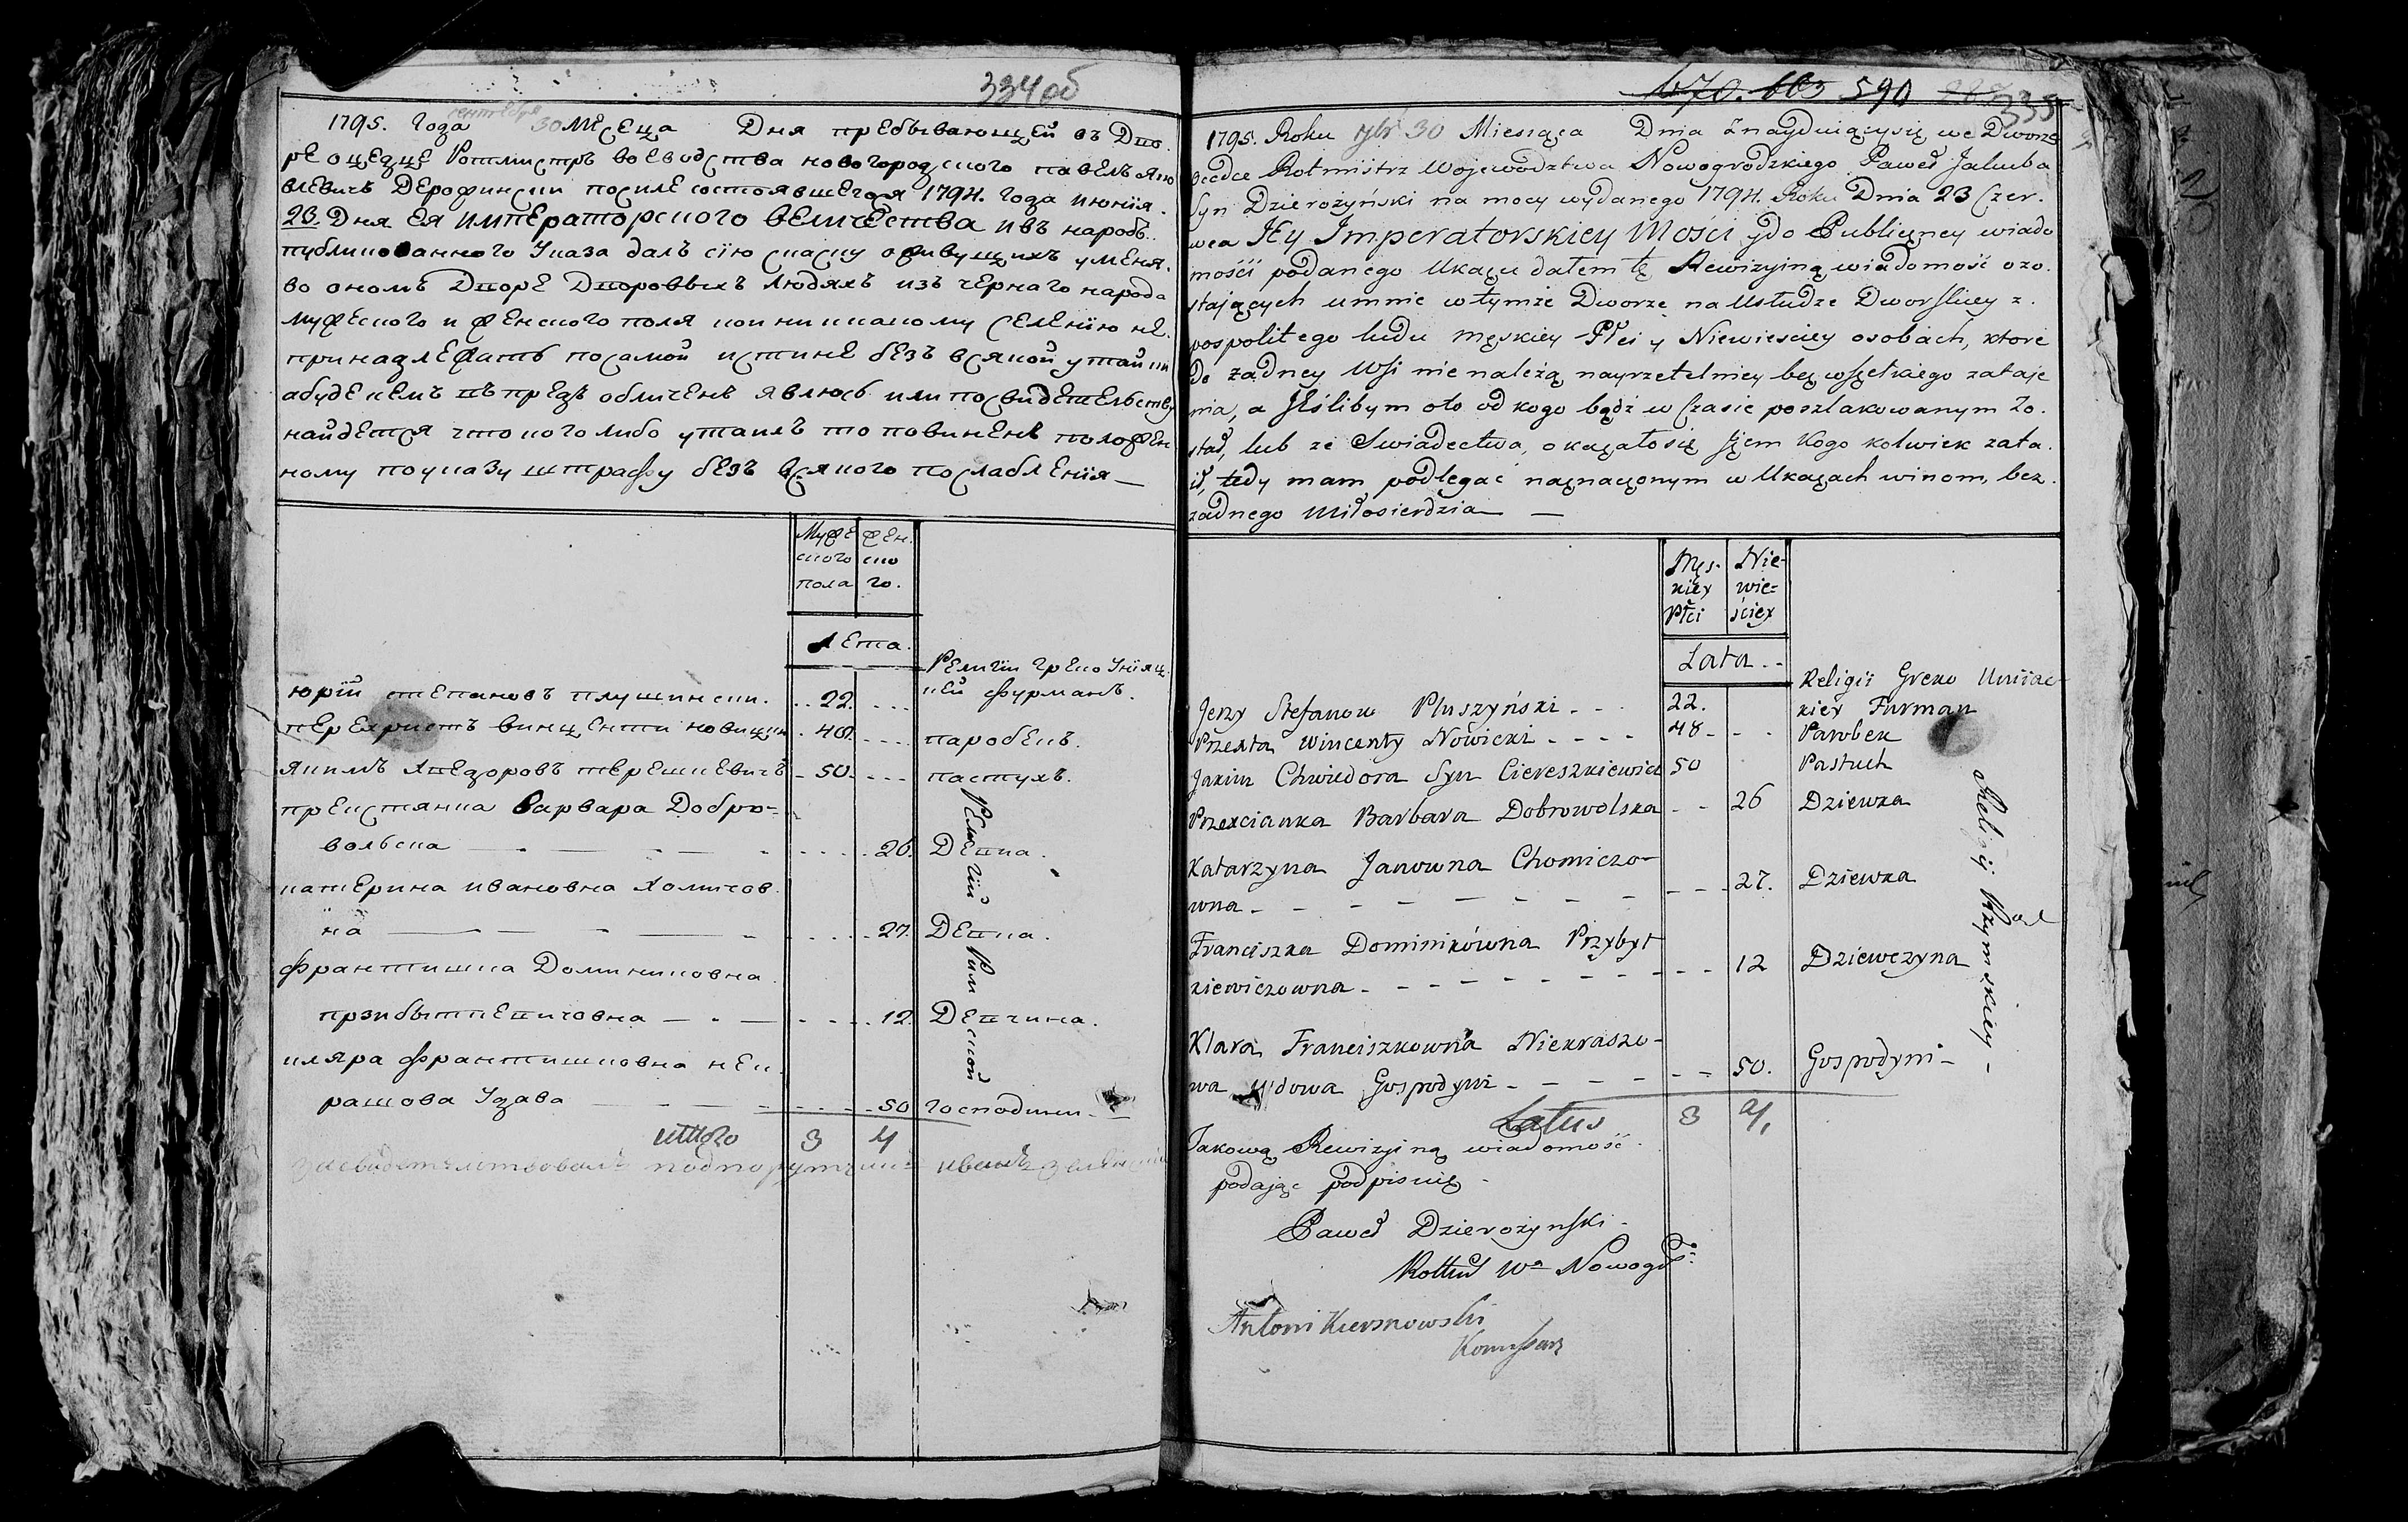 334об
1795. Года сентебря 30 Месеца Дня пребывающей въ Дво.
ре оцедце Ротмистръ воеводства новогородского павелъ яко
влевичъ Держински посиле состоявшегося 1794. Года июнія.
23. Дня ея императорского величества ивъ народъ.
публикованного Указа далъ сію скаску оживущихъ уменя.
во ономъ Дворе Дворовыхъ людяхъ изъ чернаго народа
мужеского и женского поля кои никакому селенію не.
принадлежатъ посамой истине безъ всякой утайки
абуде кемъ въ предъ обличенъ явлюсь или посвидетельству
найдется что кого либо утаилъ то повиненъ положен
ному поуказу штрафу безъ всякого послабленія —
Муже
ского
пола
жен.
ско
го.
Лета.
Религіи Греко Уніяц.
юрій степановъ плушински. 22. кей фурманъ.
перехристъ винценти новицки 48. паробекъ.
якимъ хведоровъ терешкевичъ 50. пастухъ.
прехстянка варвара Добро-
вольска 26. Девка.
катерина ивановна хомичов.
на 27. Девка.
франтишка Доминиковна
прзибыткевичовна 12. Девчина.
кляра франтишковна нек.
рашова Удава 50 господини
Религіи Римской
итого 3 4
засвидетельствовалъ подпорутчикъ иванъ
670. 663 590 335
1795. Roku 7br 30 Miesiąca Dnia Znayduiącysię we Dworze
Ocedce Rotmistrz Województwa Nowogrodzkiego Paweł Jakuba
Syn Dzierożyński na mocy wydanego 1794. Roku Dnia 23 Czer.
wca JEy Imperatorskiey Mości ydo Publiczney wiado
mości podanego Ukazu dałem tę Rewizyiną wiadomość ozo.
stających umnie wtymże Dworze na Usłudze Dworskiey z.
pospolitego ludu męskiey Płci y Niewieściey osobach, ktore
Do żadney Wsi nie należą nayrzetelniey bez wszetkiego zataje
nia, a Jeślibym oto od kogo bądź w Czasie poszlakowanym Zo.
stał, lub ze Swiadectwa, okazałosię żjem Kogo kolwiek zata.
ił, tedy mam podlegać naznaczonym w Ukazach winom, bez.
żadnego Miłosierdzia —
Męs-
kiey
Płci
Nie-
wie=
ściey
Lata.
Religii Greko Uniiac-
Jerzy Stefanow Pluszyński 22. kiey Furman
Przexta Wincenty Nowicki 48 Parobek
Jakim Chwiedora Syn Ciereszkiewicz 50 Pastuch
Przexcianka Barbara Dobrowolska 26 Dziewka
Katarzyna Janowna Chomiczo-
wna 27. Dziewka
Franciszka Dominikówna Przybyt
kiewiczowna 12 Dziewczyna
Klara Franciszkowna Niekraszo-
wa Wdowa Gospodyni 50. Gospodyni
Religij Rzymskiey
Latus 3 4
Takową Rewizyiną wiadomość
podając podpisuię
Paweł Dzierożynski
Rottm Wa Nowogd:
Antoni Kiersnowski
Komissarz